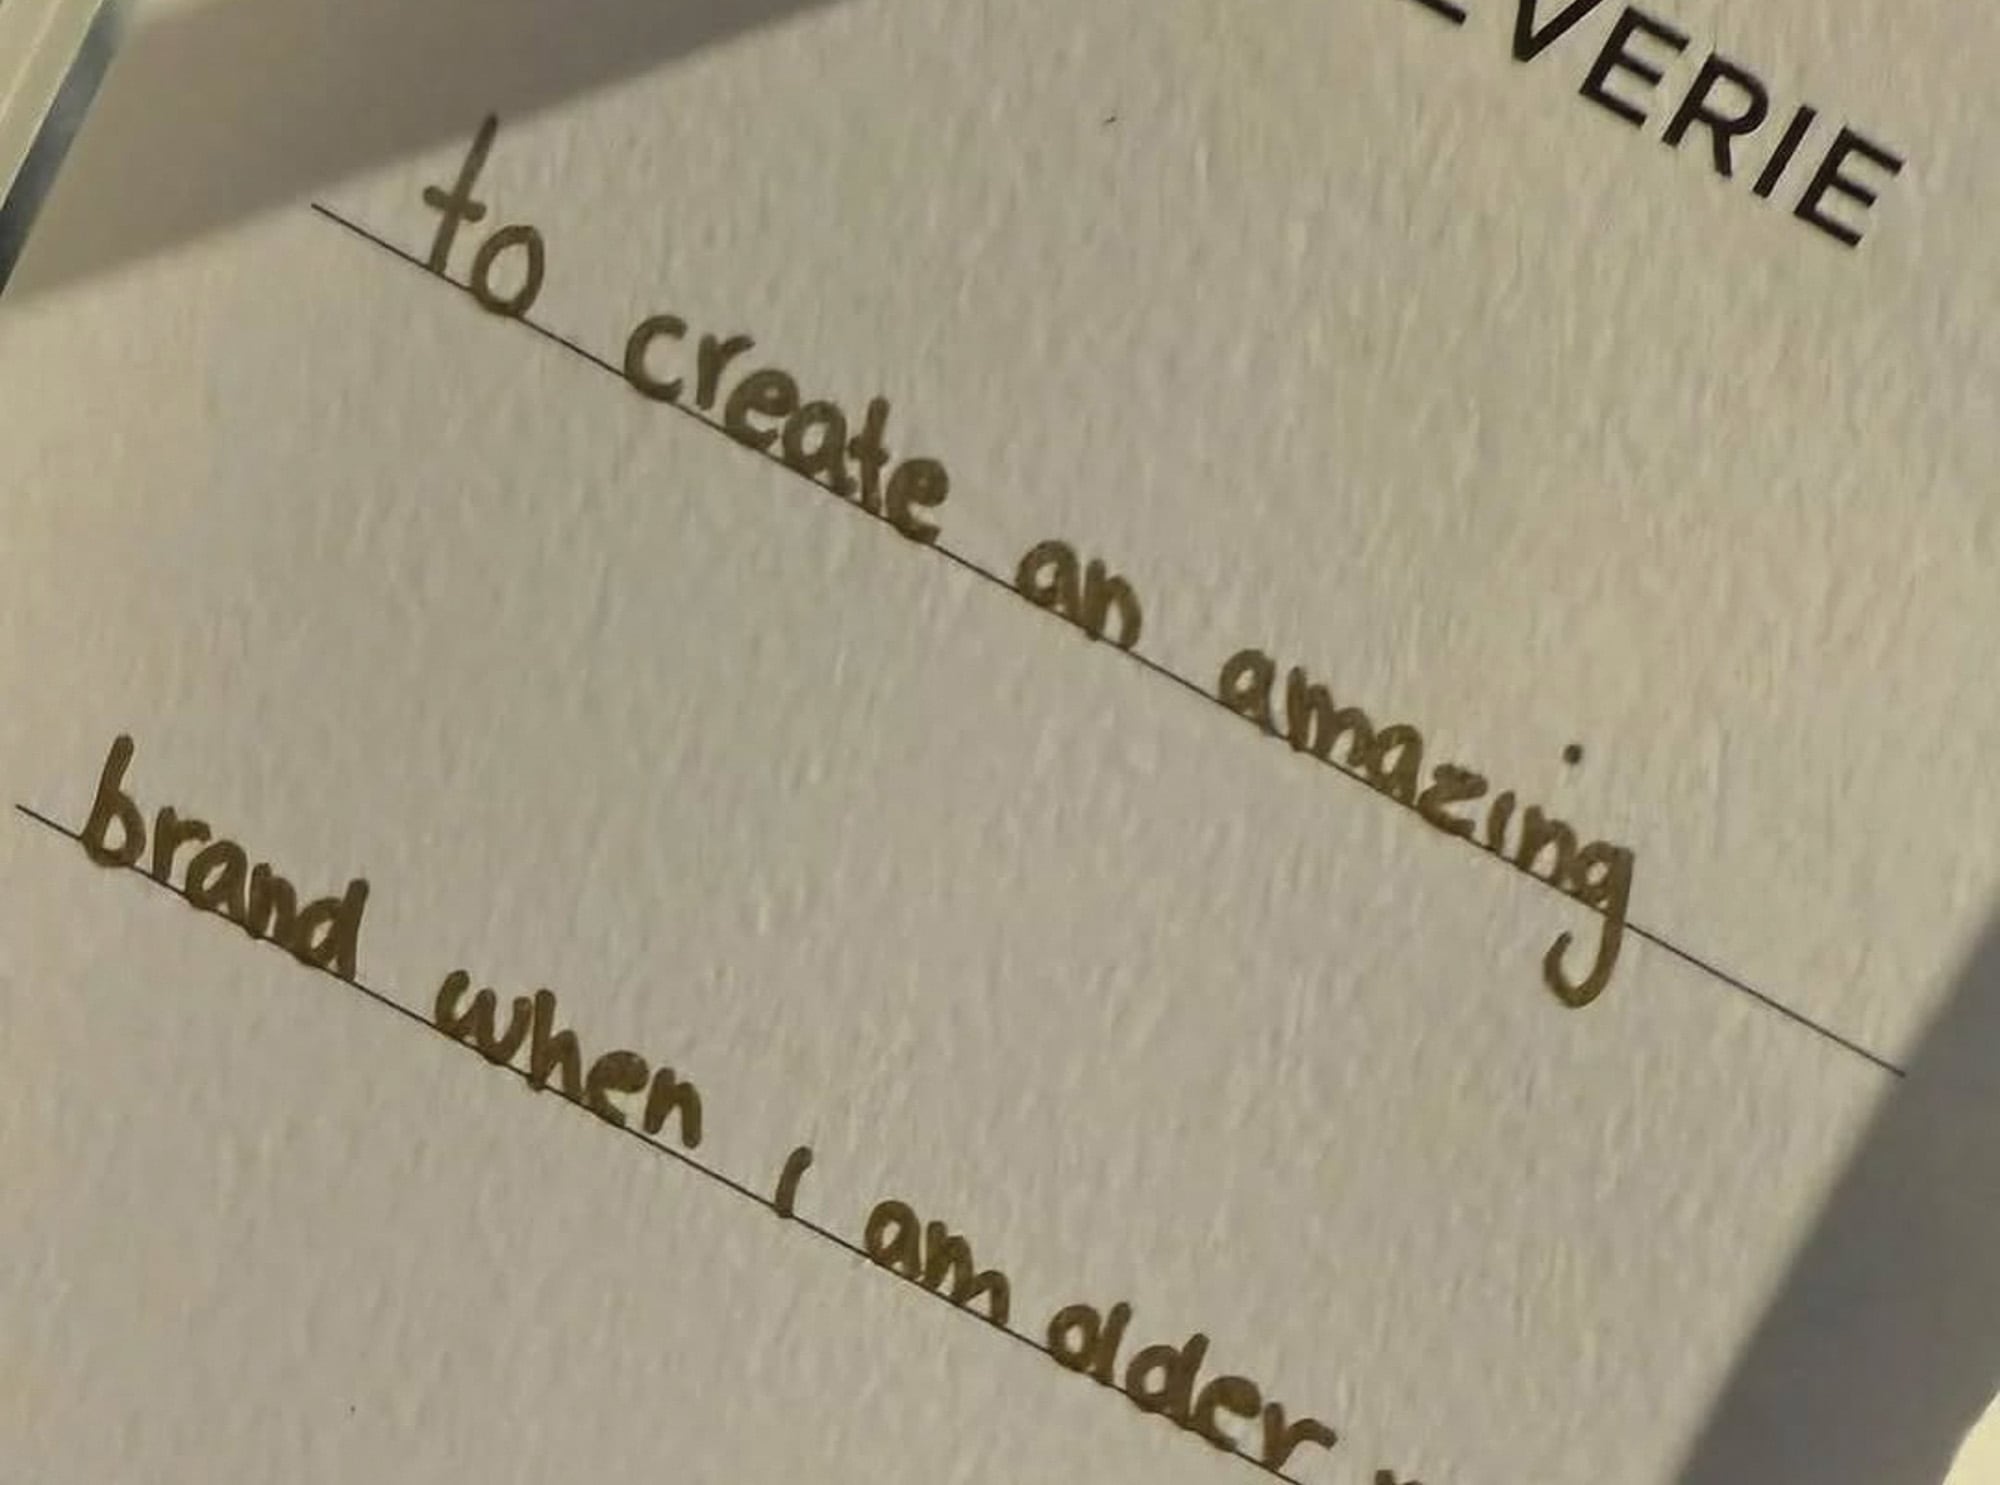 EVERIE
to create an amazing
brand when I am older